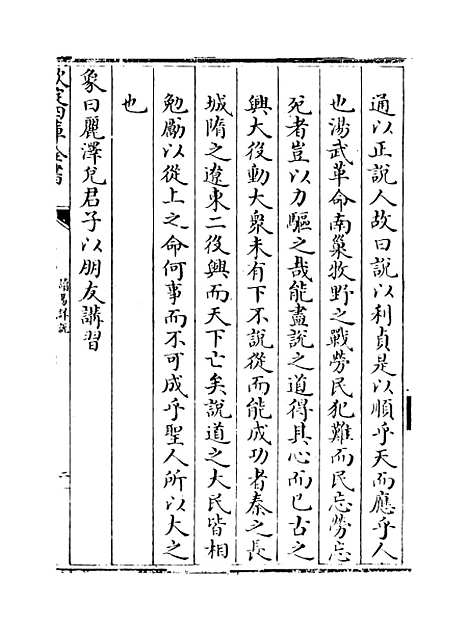 通以正說人故曰說以利貞是以順乎天而應乎人
也湯武革命南巢牧野之戰勞民犯難而民忘勞忘
死者豈以力驅之哉能盡說之道得其心而已古之
興大役動大衆未有下不說從而能成功者秦之長
城隋之遼東二役興而天下亡矣說道之大民皆相
勉勵以從上之命何事而不可成乎聖人所以大之
也
象曰麗澤兌君子以朋友講習
欽定四庫全書
易詳說
二